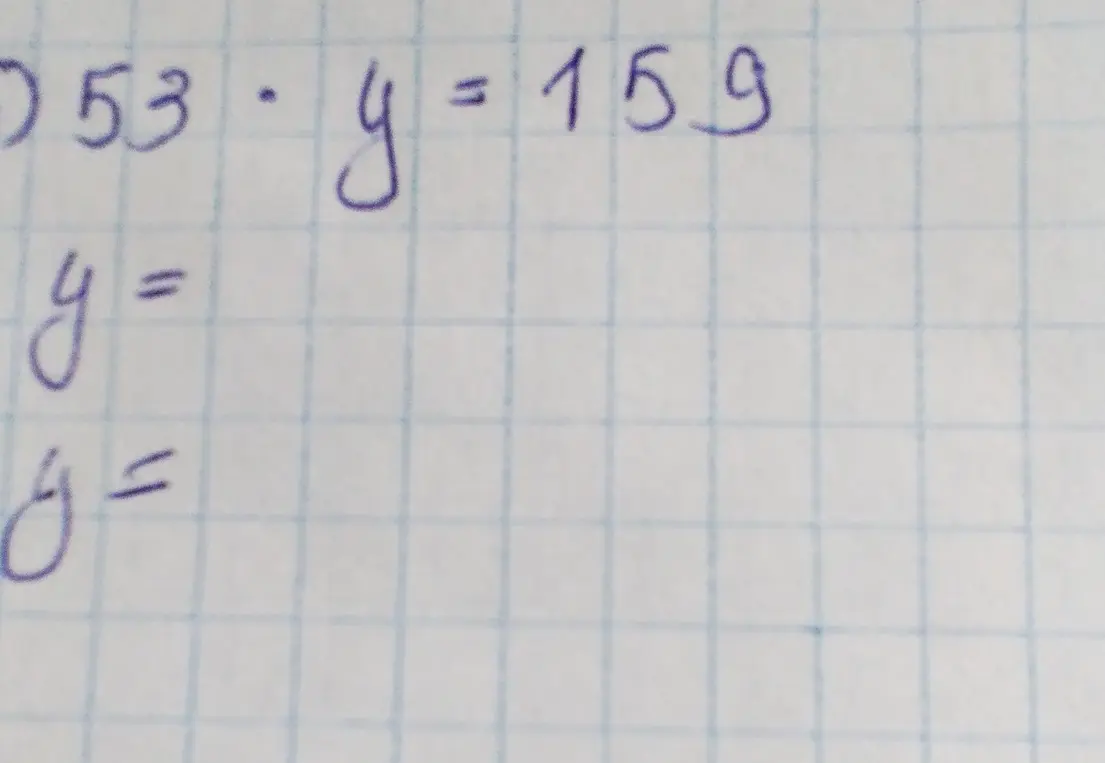 ) 53 · y = 159
y =
y =